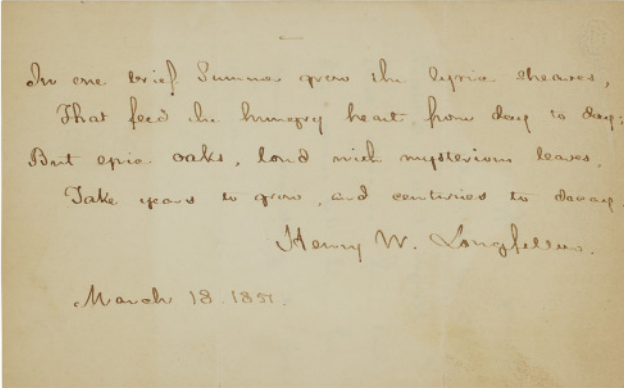 In one brief Summer grow the lyric sheaves,
That feed the hungry heart from day to day;
But epic oaks, loud with mysterious leaves,
Take years to grow, and centuries to decay.
Henry W. Longfellow.
March 18. 1851.